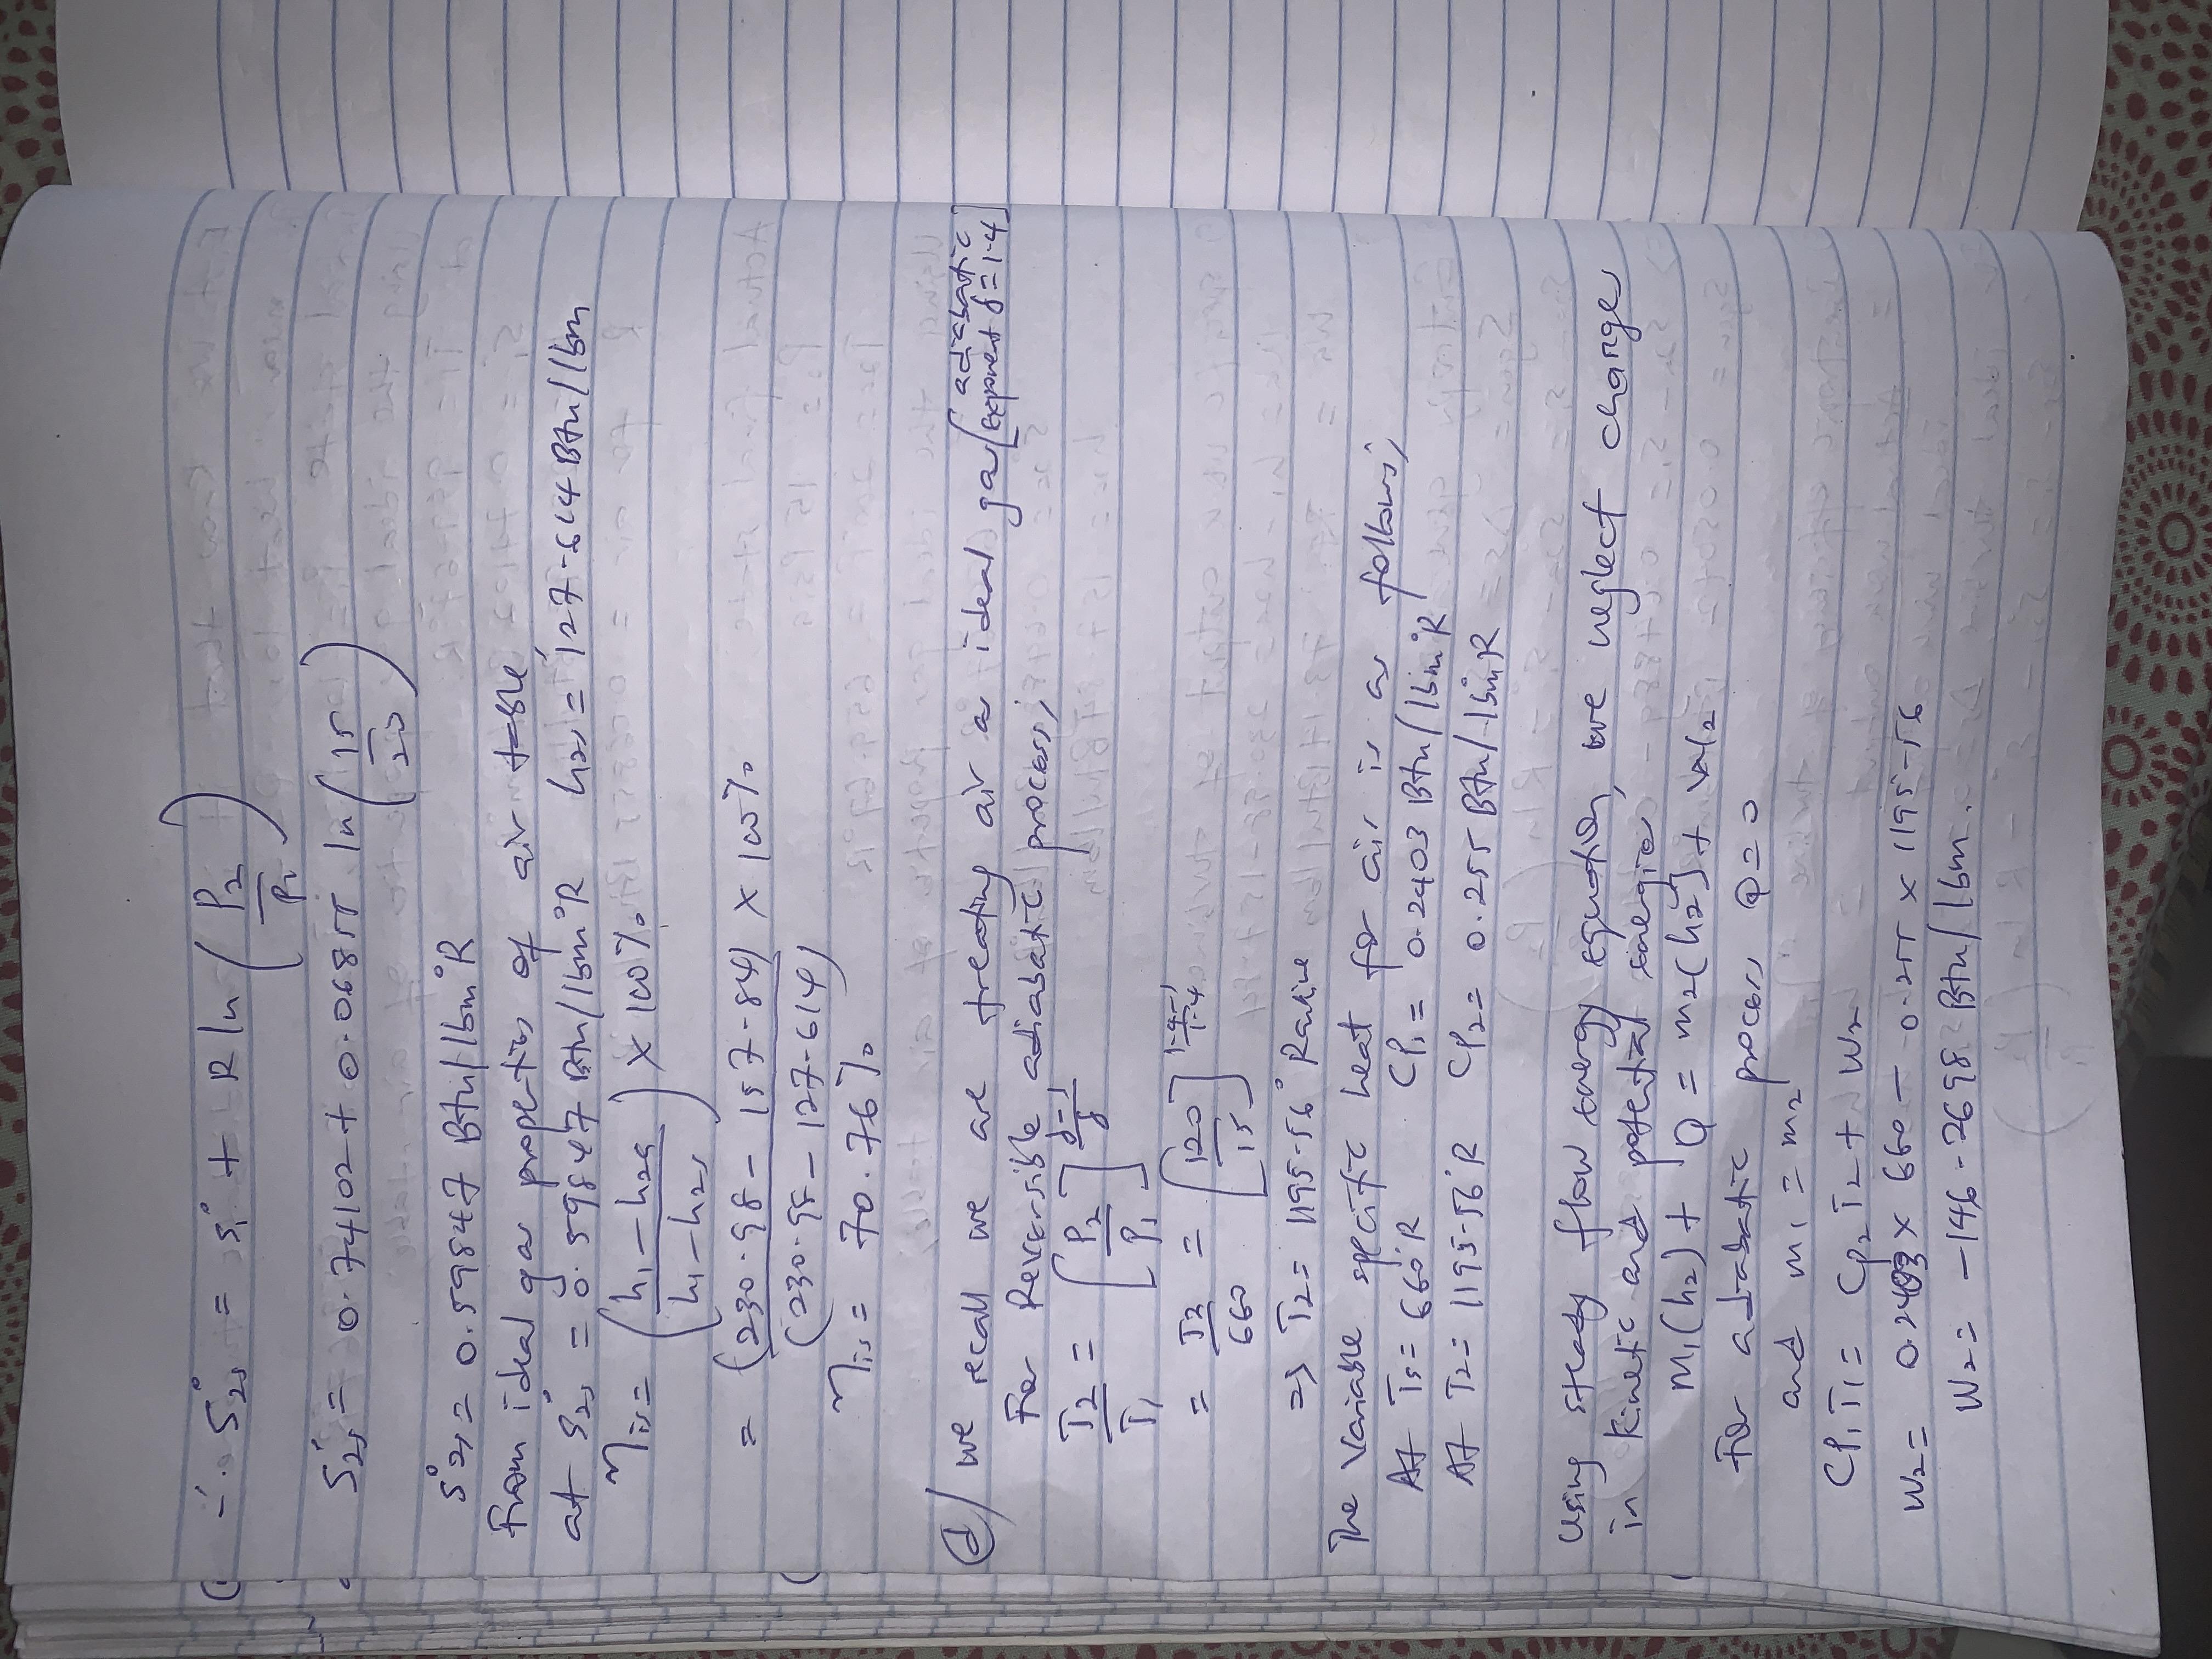 ∴ S°2s = S°1 + R ln (P2/P1)
S°2s = 0.74102 + 0.06855 ln (15/20)
S°2s = 0.59847 Btu/lbm°R
From ideal gas properties of air table
at S°2s = 0.59847 Btu/lbm°R h2s = 127.614 Btu/lbm
ηis = (h1 - h2a / h1 - h2s) × 100%
= (230.98 - 157.84) / (230.98 - 127.614) × 100%
ηis = 70.76%
(d) we recall we are treating air as ideal gas [adiabatic exponent γ = 1.4]
For Reversible adiabatic process,
T2/T1 = [P2/P1]^(γ-1/γ)
= T2/660 = [120/15]^(1.4-1/1.4)
=> T2 = 1195.56° Rankine
The variable specific heat for air is as follows,
At T1 = 660°R CP1 = 0.2403 Btu/lbm°R
At T2 = 1195.56°R CP2 = 0.255 Btu/lbm°R
Using steady flow energy equation, we neglect change
in kinetic and potential energies
m1(h1) + Q = m2(h2) + W2
For adiabatic process Q = 0
and m1 = m2
CP1 T1 = CP2 T2 + W2
W2 = 0.2403 × 660 - 0.255 × 1195.56
W2 = -146.2698 Btu/lbm.